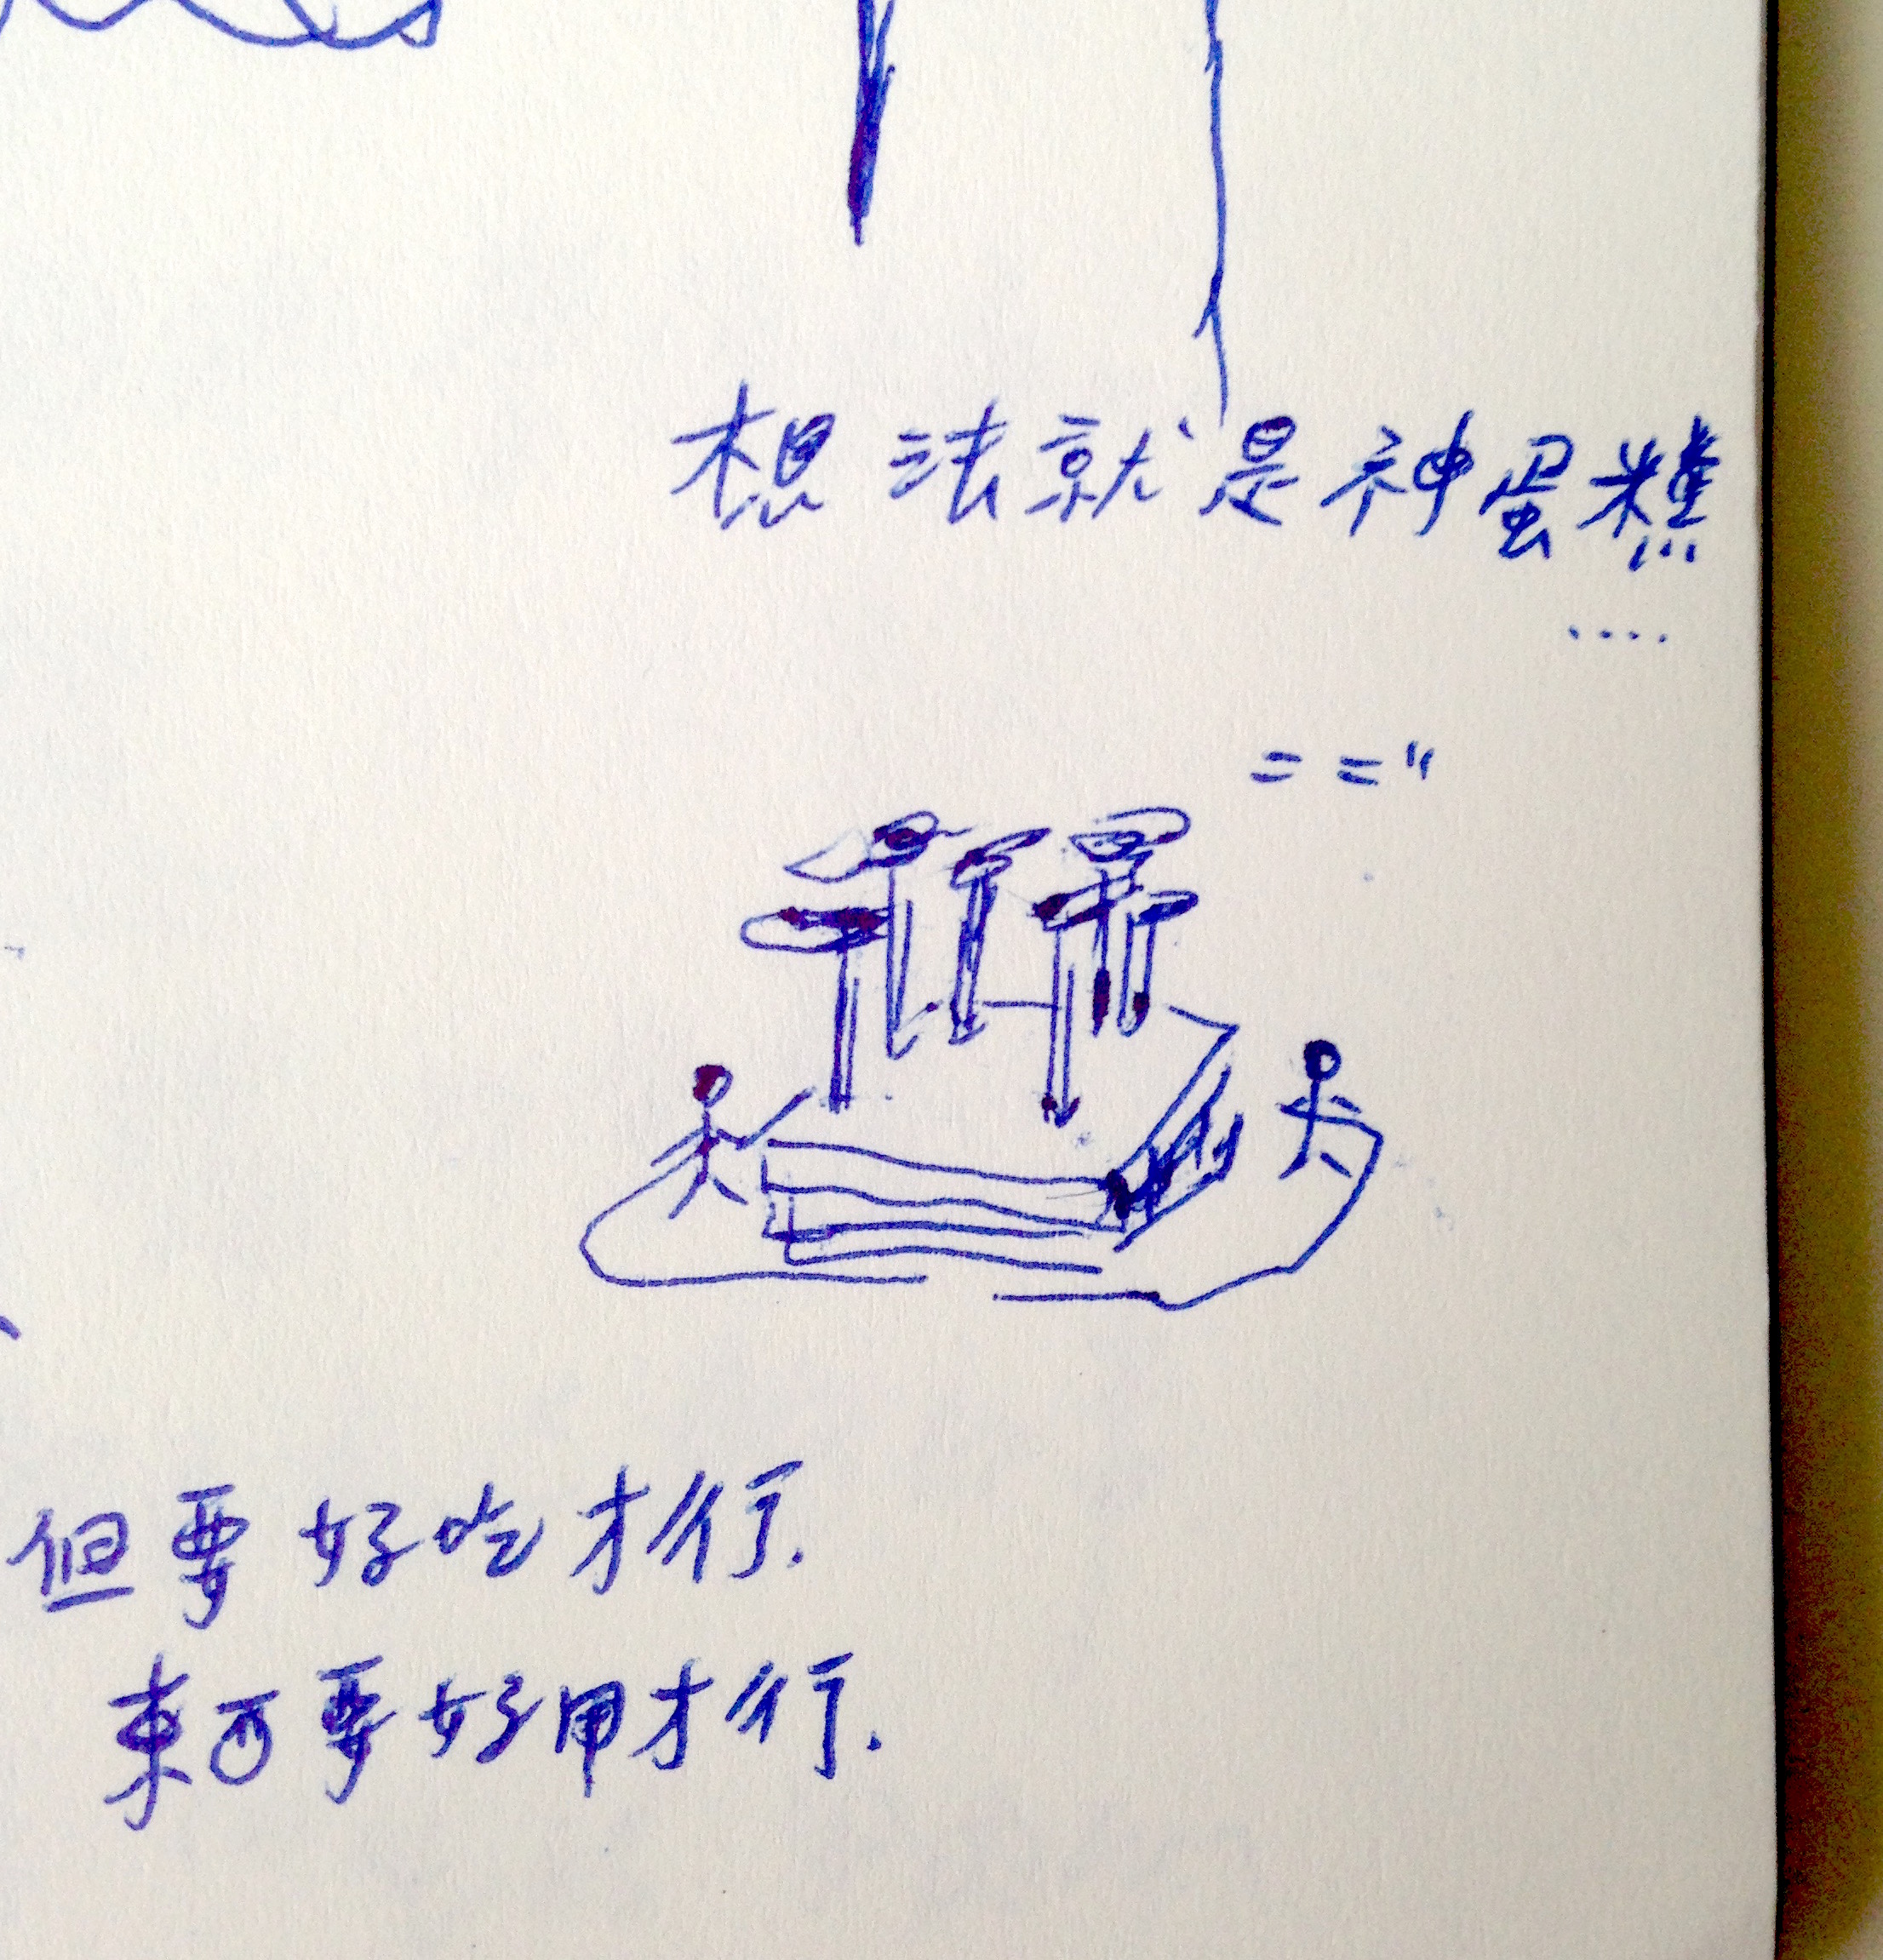 想法就是神蛋糕
....
= = "
但要好吃才行.
東西要好用才行.